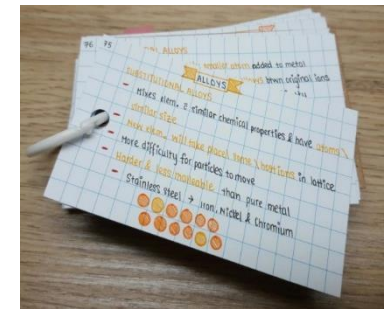 76 75
smaller atom added to metal
btwn original ions
ALLOYS
SUBSTITUTIONAL ALLOYS
- Mixes elem. 2 similar chemical properties & have atoms \
similar size
- New elem. will take place of ions \ cations in lattice
- More difficulty for particles to move
- Harder & less malleable than pure metal
Stainless steel → Iron, Nickel & Chromium